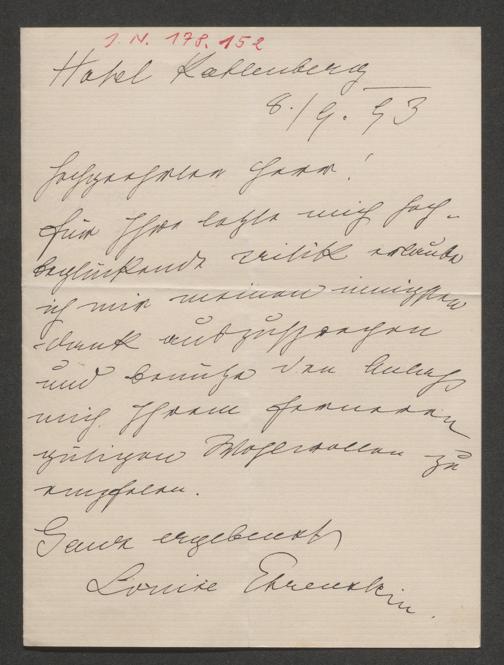 J. N. 178.152
Hotel Kahlenberg
8./9. 93
Hochgeehrter Herr!
für Ihre letzte mich hoch-
beglückende Critik erlaube
ich mir meinen innigsten
dank auszusprechen
und benütze den Anlaß
mich Ihrem ferneren
gütigen Wohlwollen zu
empfelen.
Ganz ergebenst
Louise Ehrenstein.